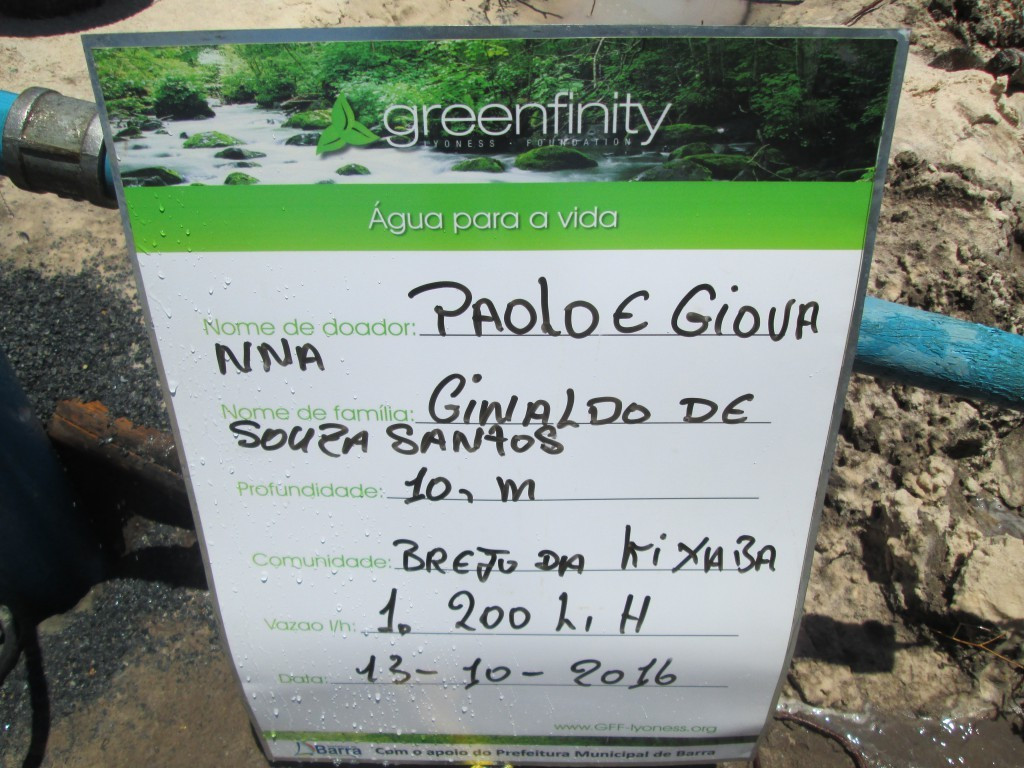 greenfinity
LYONESS · FOUNDATION
Água para a vida
Nome de doador: PAOLO E GIOVA
NNA
Nome de família: GINALDO DE
SOUZA SANTOS
Profundidade: 10, m
Comunidade: BREJO DA LiXABA
Vazao l/h: 1. 200 L, H
Data: 13-10-2016
www.GFF-lyoness.org
Barra Com o apoio do Prefeitura Municipal de Barra